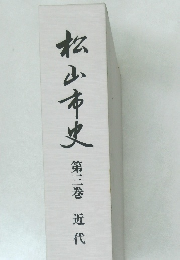 松山市史 第三巻 近代